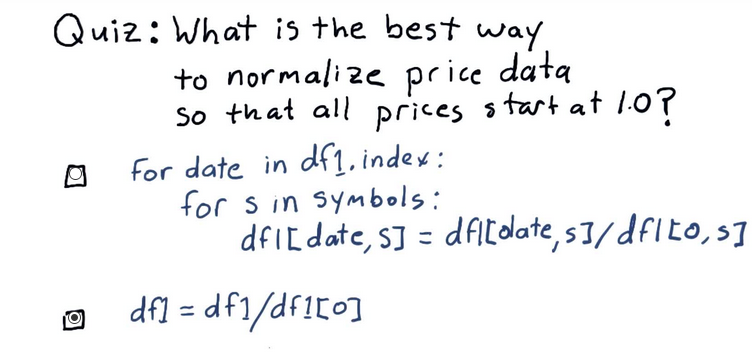 Quiz: What is the best way
to normalize price data
so that all prices start at 1.0?
for date in df1.index:
for s in symbols:
df1[date,s] = df1[date,s]/df1[0,s]
df1 = df1/df1[0]